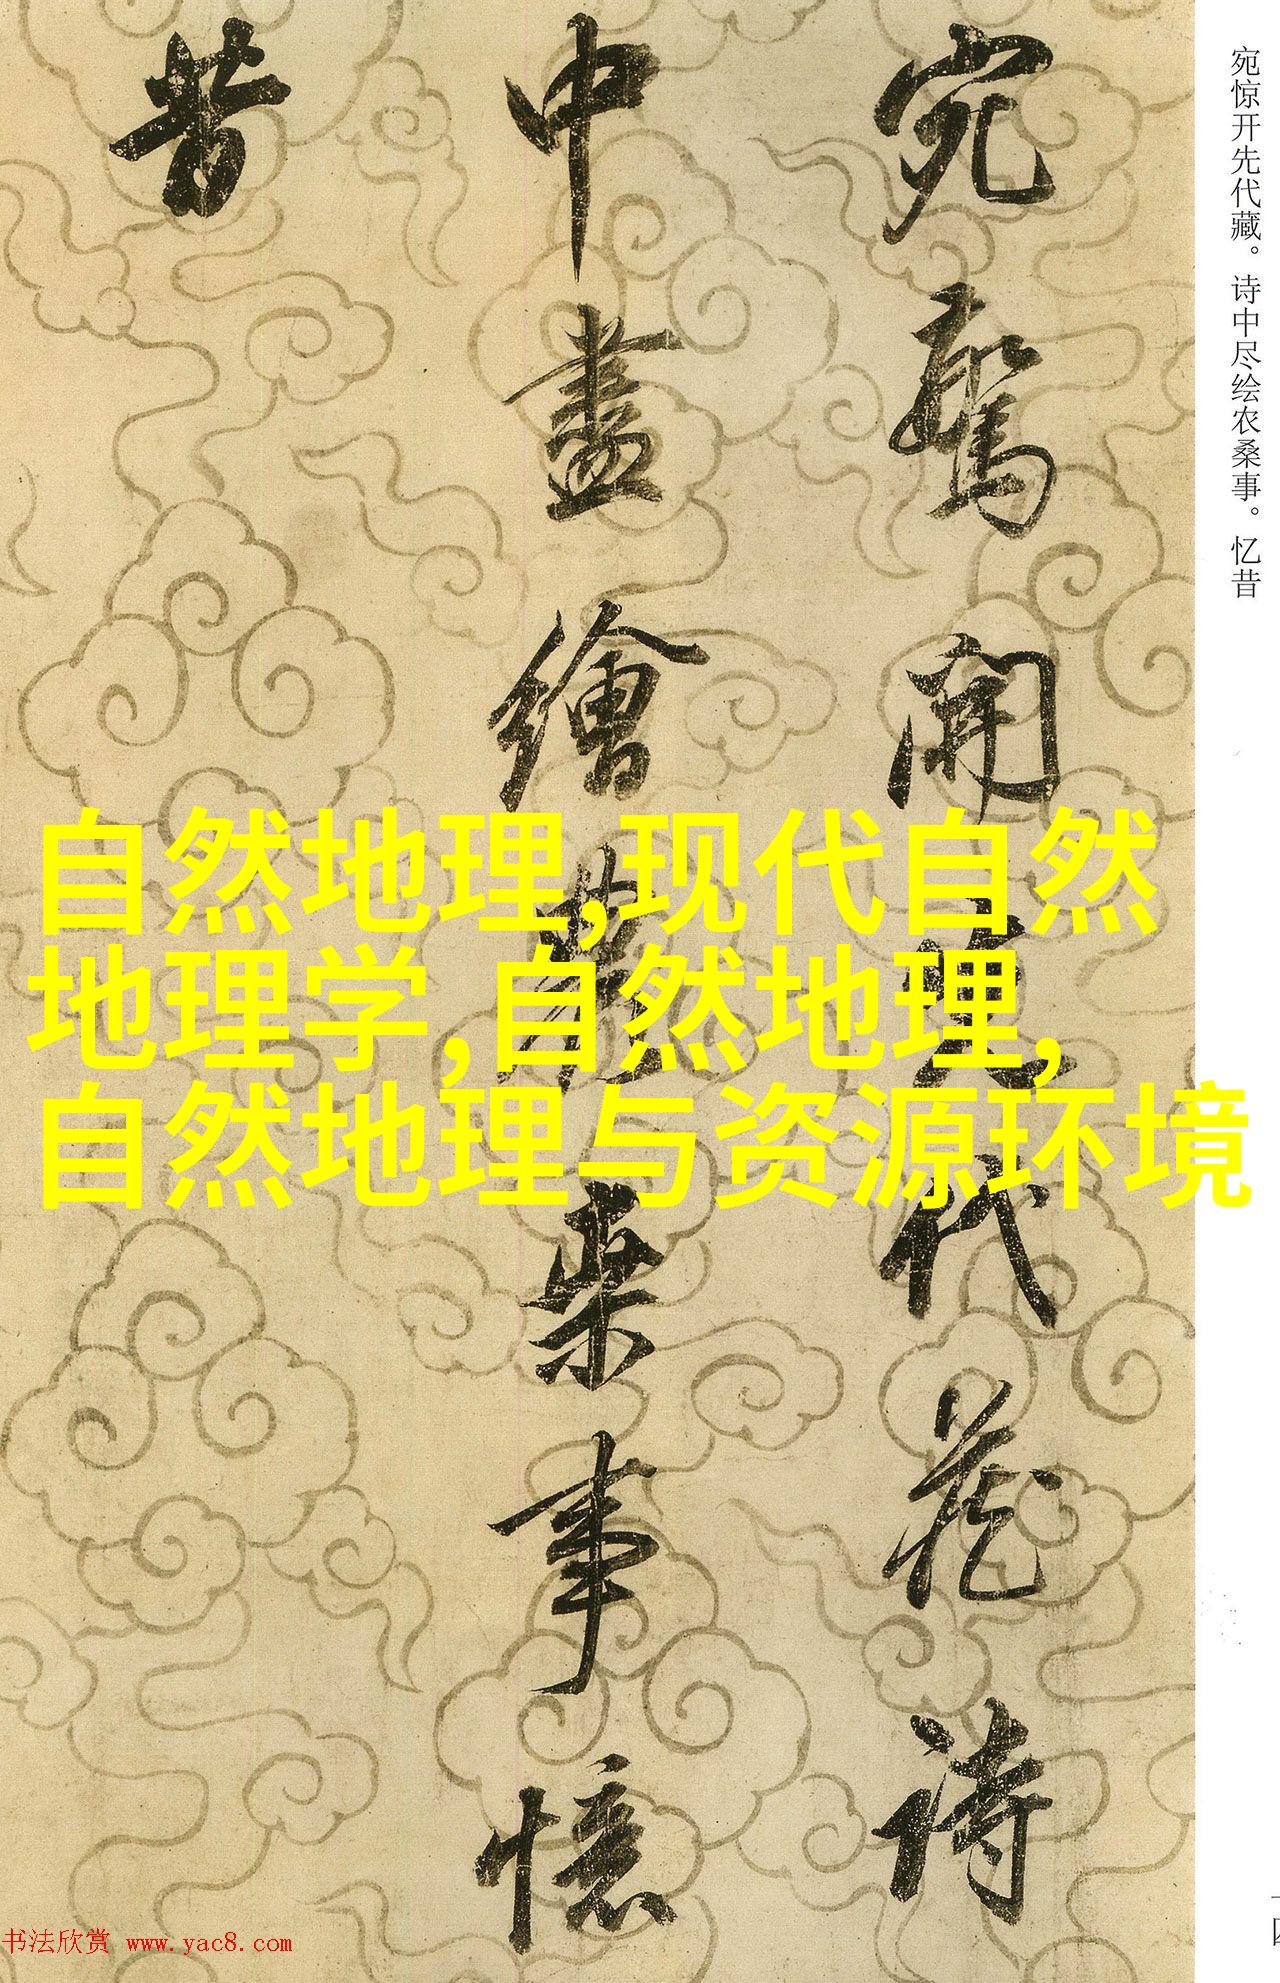 宛惊开先代藏。诗中尽绘农桑事。忆昔
宛驚開先代藏詩
中盡繪農桒事憶
昔
自然地理,现代自然
地理学,自然地理,
自然地理与资源环境
书法欣赏 www.yac8.com